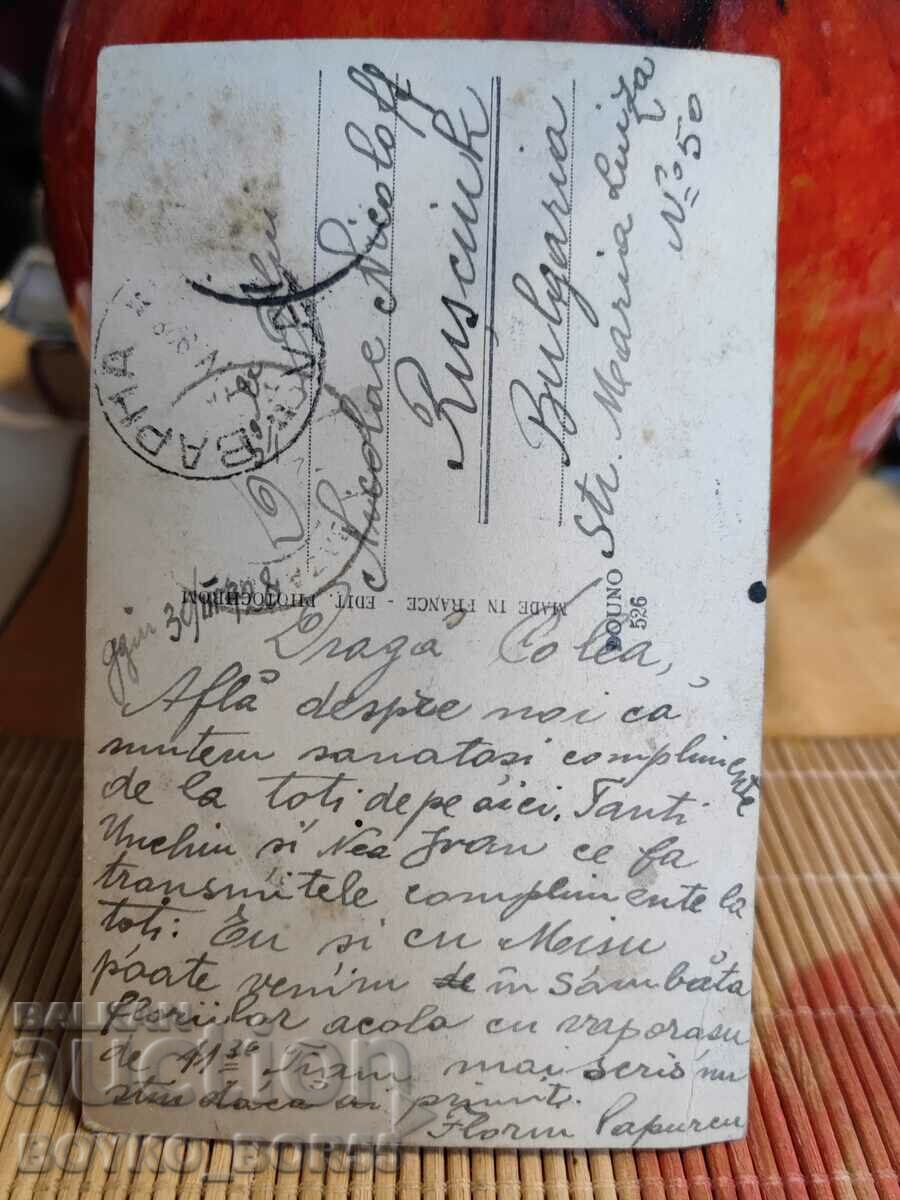 Nicolae Nicoloff
Rusciuk
Bulgaria
Str. Maria Luiza
No 50
ВАРНА
MADE IN FRANCE - EDIT. PHOTOCHROM
DOUNO
526
Dragă Colea,
Află despre noi că
suntem sanatosi complimente
de la toti de pe aici. Tanti
Unchiu si Nea Ivan ce fa
transmitele complimente la
toti. Eu si cu Misu
poate venim de în sâmbăta
floriilor acolo cu vaporasu
de 11 30 Tiam mai scris nu
stiu daca ai primit.
Florin Papurcu
BALKAN
auction
BOYKO_BOR55